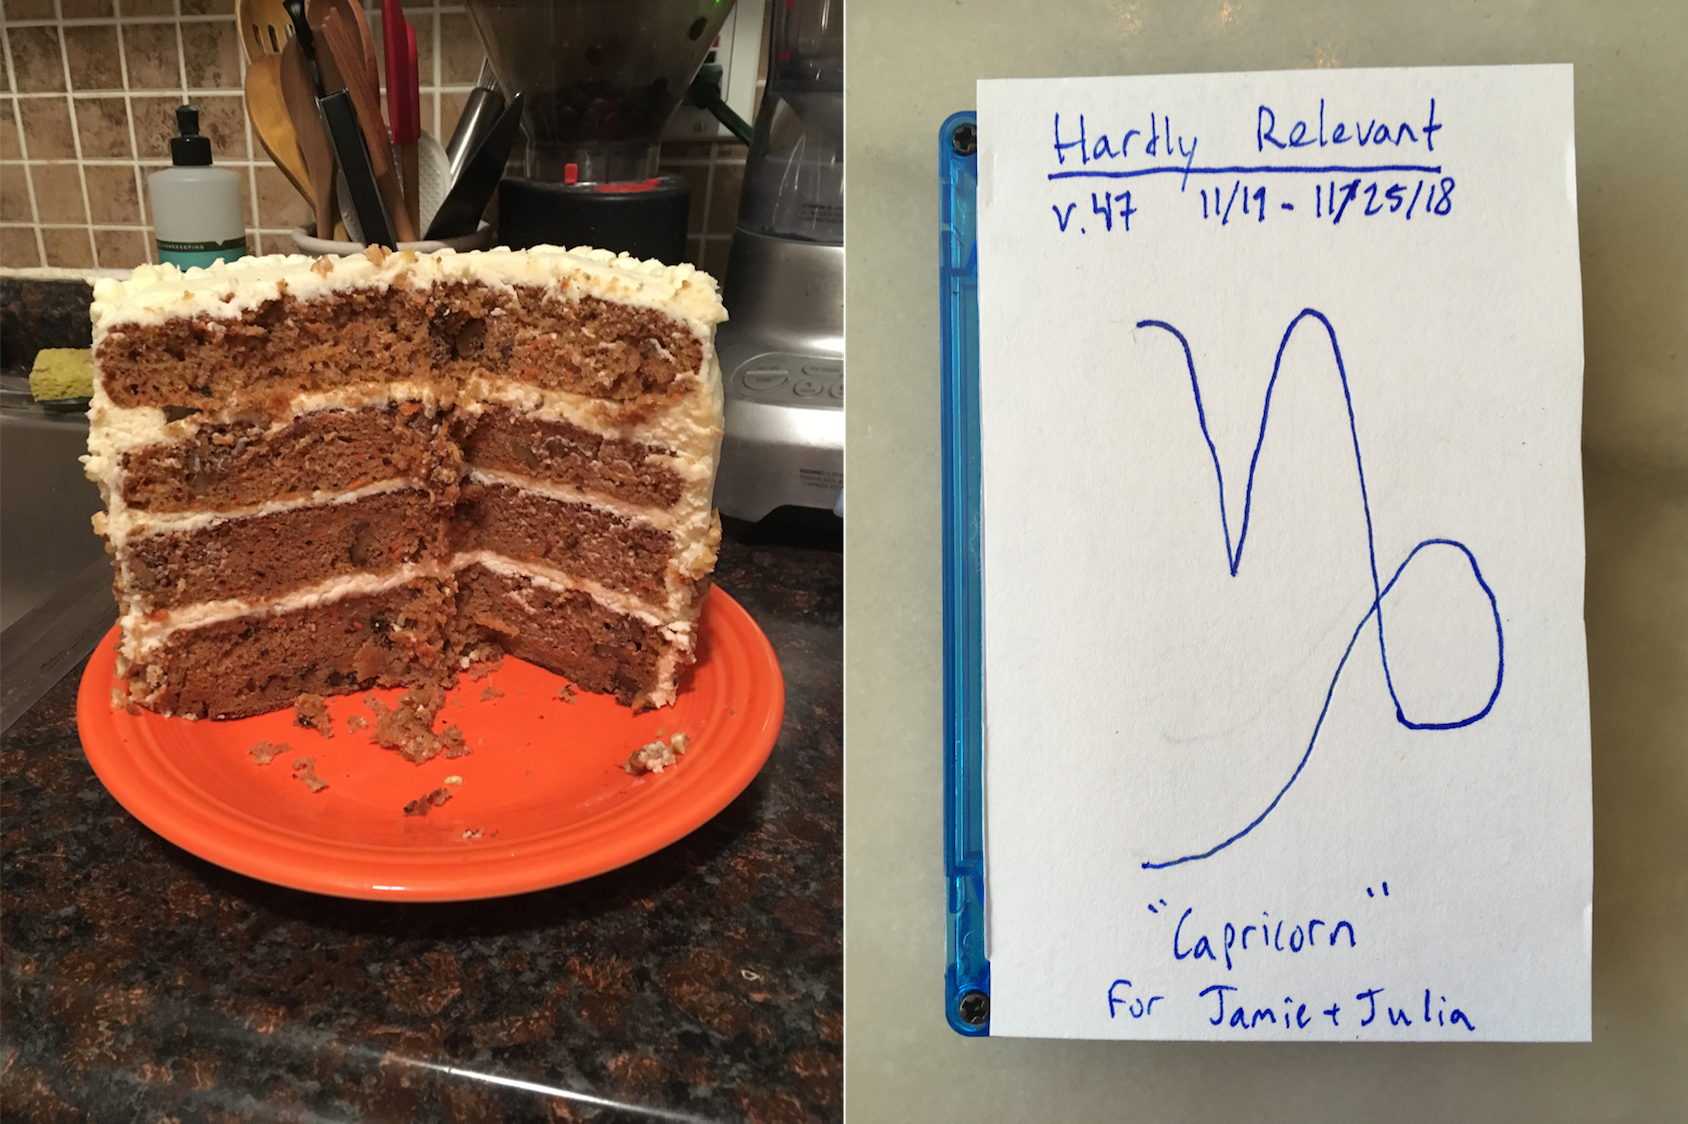 Hardly Relevant
v.47 11/19 - 11/25/18
"Capricorn"
For Jamie + Julia